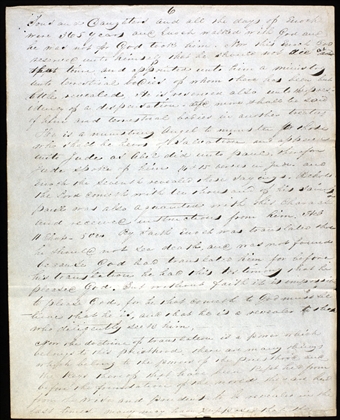 6
Sons and Daughters and all the days of Enoch
were 365 years and Enoch walked with God and
he was not for God took him. Now this Enoch God
reserved unto himself that he should not die at
that time and appointed unto him a ministry
unto terrestrial bodies of whom there has been but
little revealed. It is reserved also unto the presi-
dency of a dispensation. and more shall be said
of him and terrestrial bodies in another treatise
He is a ministering Angel to minister to those
who shall be heirs of Salvation and appeared
unto Jude as Abel did unto Paul, therefore
Jude spoke of him
Enoch the seventh revealed these sayings. Behold
the Lord cometh with ten thousand of his Saints
Paul was also acquainted with this character
and received instructions from him. Heb
11 Chap 5 ver. By Faith Enoch was translated that
he should not see death, and was not found
because God had translated him for before
his translation he had this testimony that he
pleased God. But without faith it is impossible
to please God, for he that cometh to God must be-
lieve that he is, and that he is a rewarder to those
who diligently seek him.
Now the doctrine of translation is a power which
belongs to this priesthood, there are many things
which belong to the powers of the priesthood and
the keys thereof that have been kept hid from
before the foundation of the world. they are hid
from the wise and prudent to be revealed in the
last times many may have supposed that the